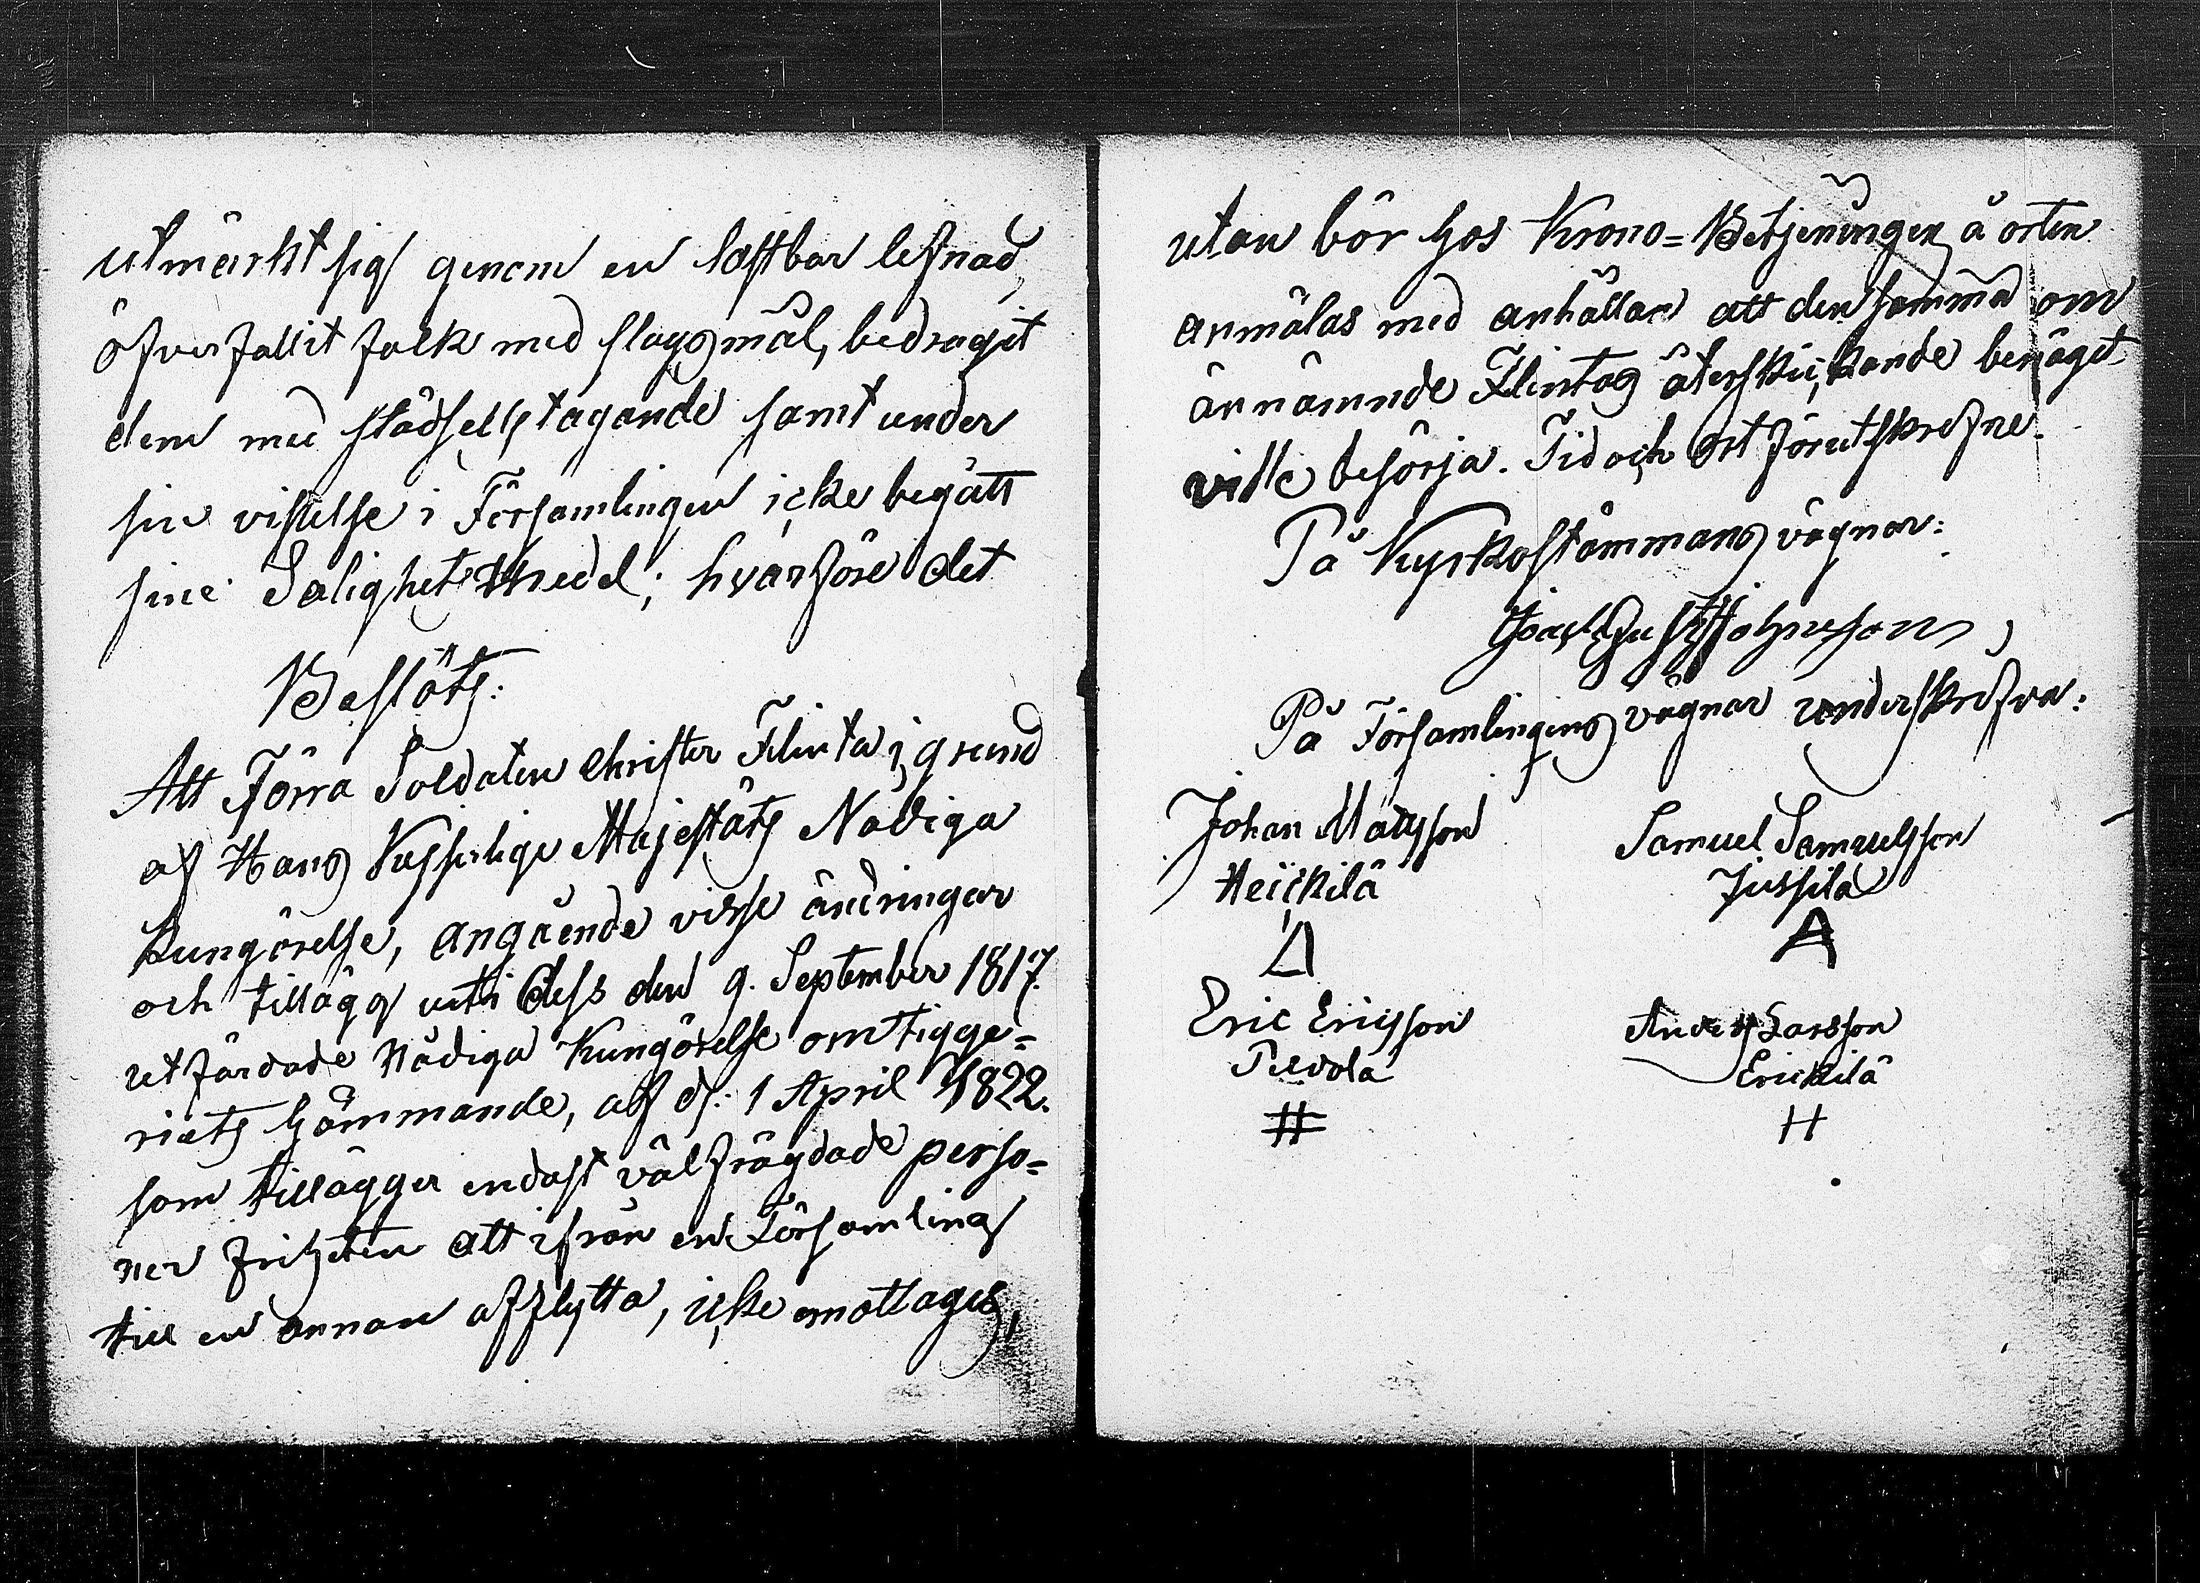 utmärkt sig genom en lastbar lefnad,
öfverfallit folk med slagsmål, bedragit
dem med städsels tagande samt under
sin vistelse i Församlingen icke begått
sine Salighets Medel; hvarföre det
Beslöts:
Att Förra Soldaten Christer Flinta i grund
af Hans Kejserliga Majestäts Nådiga
Kungörelse, angående visse ändringar
och tillägg uti dess den 9. September 1817.
utfärdade Nådiga Kungörelse om tigge=
riets hämmande, af d. 1 April 1822.
som tillägger endast välfrägdade perso=
ner friheten att ifrån en Församling
till en annan afflytta, icke emottages,
utan bör hos Krono=Betjeningen å orten
anmälas med anhållan att densamma om
ärnämnde Flintas återskickande benäget
ville besörja. Tid och Ort förutskrefne.
På Kyrkostämmans vägnar:
Gust Johnsson
På Församlingens vägnar underskrifva:
Johan Matsson
Heickilä
Samuel Samuelsson
Jussila
A
Eric Ericsson
#
Anders Larsson
Erickilä
H